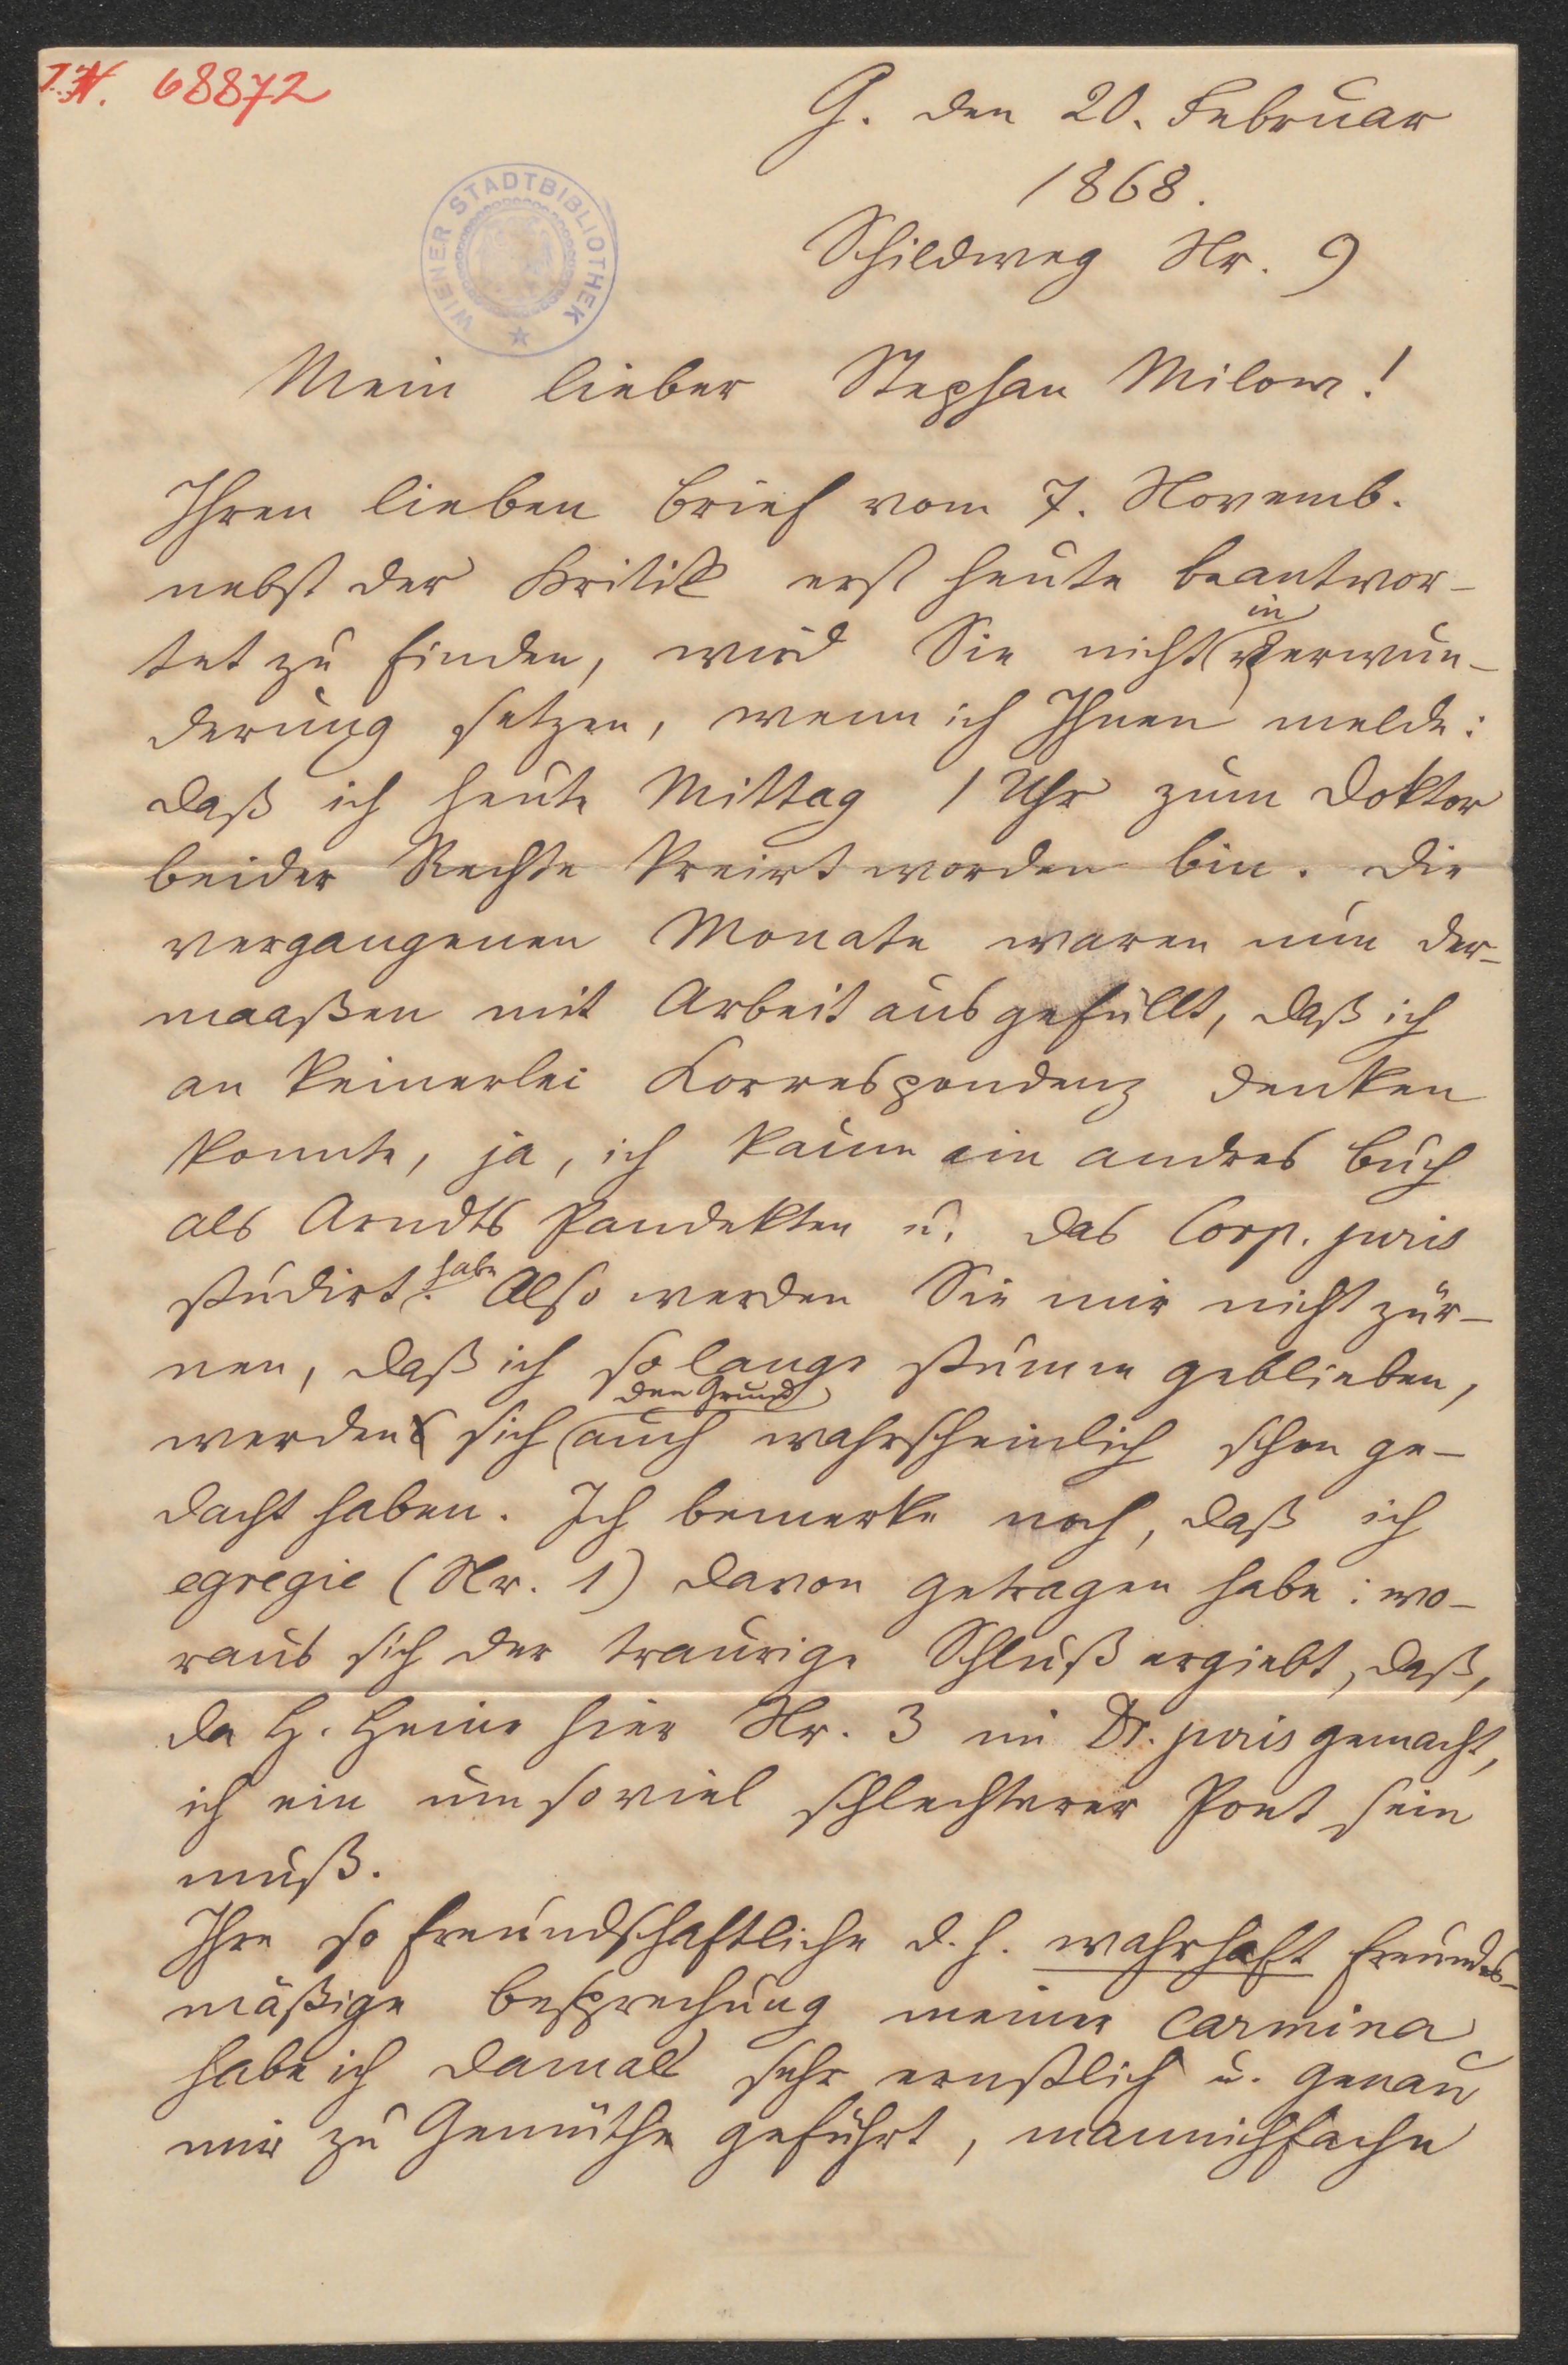 I.N. 68872
G. den 20. Februar
1868.
WIENER STADTBIBLIOTHEK
Schildweg Nr. 9
Mein lieber Stephan Milow!
Ihren lieben Brief vom 7. Novemb.
nebst der Kritik erst heute beantwor-
tet zu finden, wird Sie nicht in Verwun-
derung setzen, wenn ich Ihnen melde:
daß ich heute Mittag 1 Uhr zum Doktor
beider Rechte kreirt worden bin. Die
vergangenen Monate waren nun der-
maaßen mit Arbeit ausgefüllt, daß ich
an keinerlei Korrespondenz denken
konnte, ja, ich kaum ein andres Buch
als Arndts Pandekten u. das Corp. juris
studirt habe. Also werden Sie mir nicht zür-
nen, daß ich so lange stumm geblieben,
werden sich den Grund auch wahrscheinlich schon ge-
dacht haben. Ich bemerke noch, daß ich
egregie (Nr. 1) davon getragen habe: wo-
raus sich der traurige Schluß ergiebt, daß,
da H. Heine hier Nr. 3 im Dr. juris gemacht,
ich ein um soviel schlechterer Poet sein
muß.
Ihre so freundschaftliche d. h. wahrhaft freundes-
mäßige Besprechung meiner carmina
habe ich damals sehr ernstlich u. genau
mir zu Gemüthe geführt, mannichfache